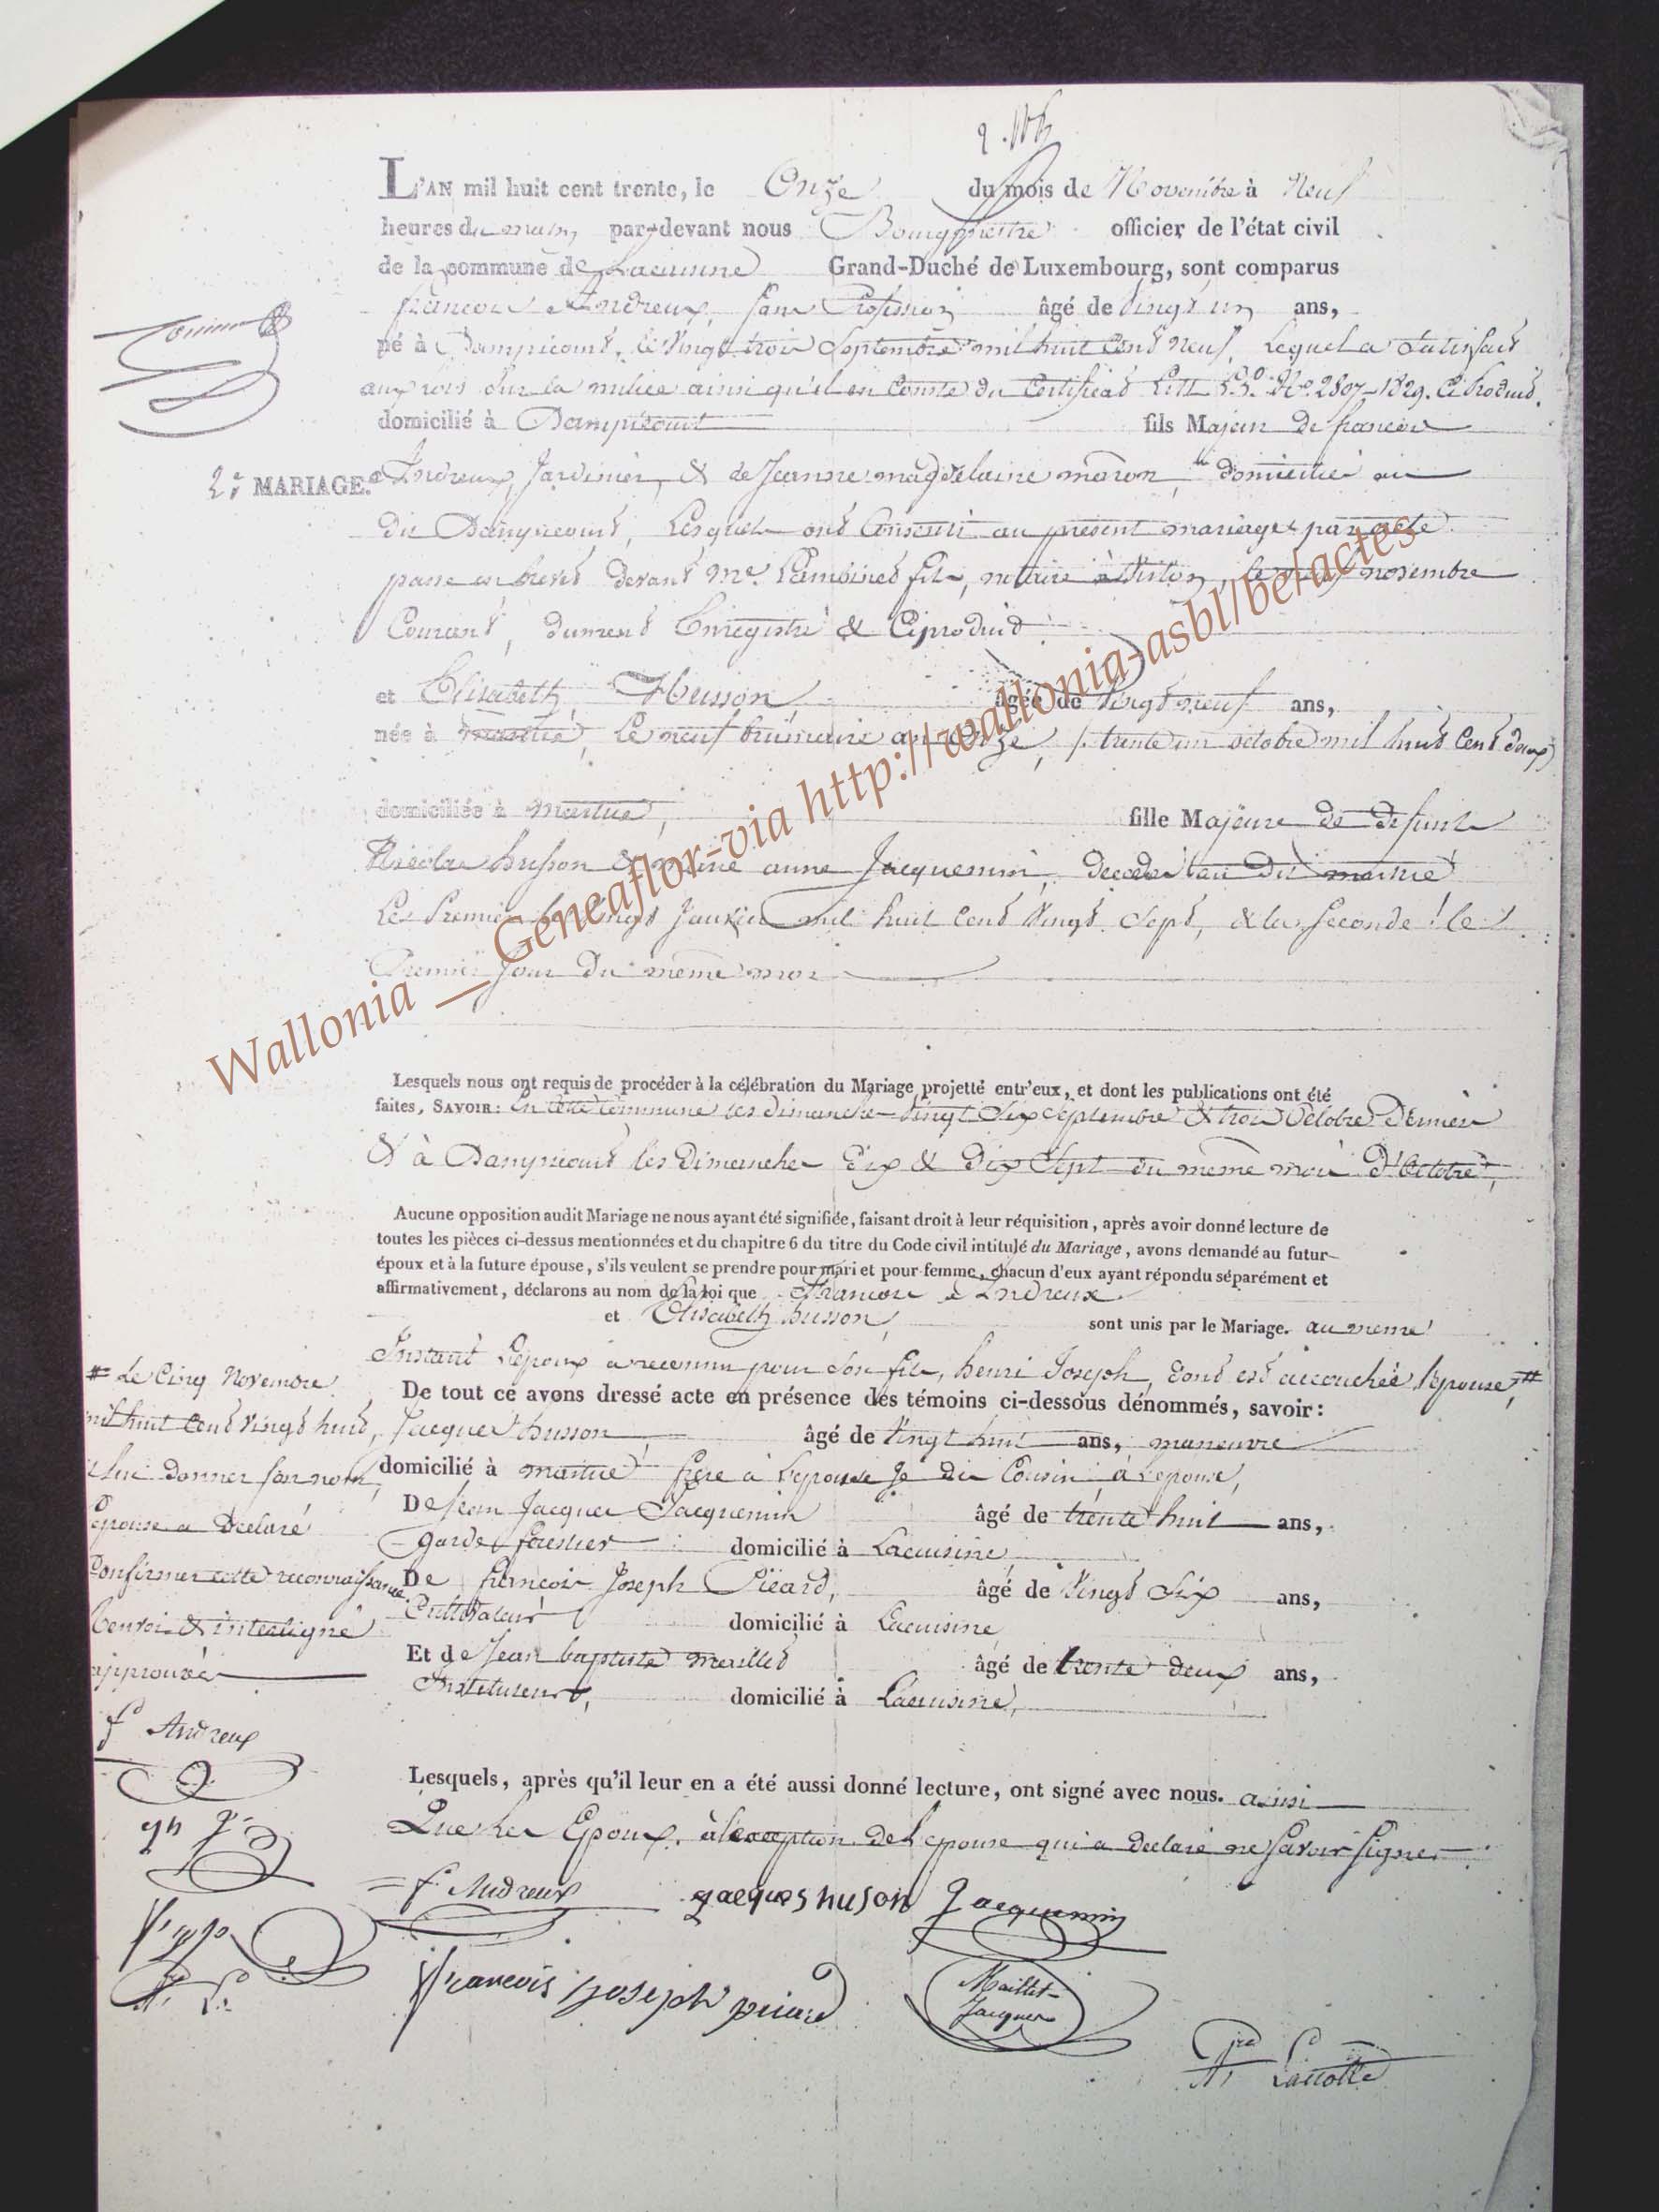 L'AN mil huit cent trente, le Onze du mois de Novembre à Neuf
heures du matin par-devant nous Bourgmestre officier de l'état civil
de la commune de Lacuisine Grand-Duché de Luxembourg, sont comparus
françois Andreux, sans Profession âgé de vingt un ans,
né à Dampicourt, le vingt trois Septembre mil huit cent neuf, Lequel a Satisfait
aux lois sur la milice ainsi qu'il en Conste du Certificat Litt No. 2807-1829. Ci Produit.
domicilié à Dampicourt fils Majeur de francois
2e MARIAGE. Andreux, Jardinier, & de Jeanne magdelaine domiciliés au
dit Dampicourt, Lesquels ont Consenti au présent mariage par acte
passé en brevet devant Me. fils, notaire à Virton, le novembre
Courant, dument Enregistré & Ciproduit
et Elisabeth Husson âgée de vingt neuf ans,
née à martué, Le neuf brumaire an onze, (trente un octobre mil huit Cent deux)
domiciliée à martué, fille Majeure de defunts
Nicolas husson & marie anne Jacquemin, decedés au dit martué
Le Premier le vingt Janvier mil huit Cent vingt Sept, & la Seconde le
Premier Jour du même mois
Lesquels nous ont requis de procéder à la célébration du Mariage projetté entr'eux, et dont les publications ont été
faites, SAVOIR: En cette Commune les dimanches vingt Six Septembre & trois Octobre Dernier
& à Dampicourt les Dimanches Dix & Dix Sept du même mois d'Octobre,
Aucune opposition audit Mariage ne nous ayant été signifiée, faisant droit à leur réquisition, après avoir donné lecture de
toutes les pièces ci-dessus mentionnées et du chapitre 6 du titre du Code civil intitulé du Mariage, avons demandé au futur
époux et à la future épouse, s'ils veulent se prendre pour mari et pour femme, chacun d'eux ayant répondu séparément et
affirmativement, déclarons au nom de la loi que Francois Andreux
et Elisabeth husson, sont unis par le Mariage. au meme
Instant L'epoux a reconnu pour Son fils, henri Joseph, dont est accouchée l'epouse, #
# Le Cinq Novembre
mil huit Cent vingt huit,
& lui donner son nom,
Epouse a declaré
Confirmer cette reconnaissance
renvoi & interligné
approuvés
De tout ce avons dressé acte en présence des témoins ci-dessous dénommés, savoir:
Jacques husson âgé de vingt huit ans, maneuvre
domicilié à martué frère à l'epouse Je dis Cousin à l'epouse,
De Jean Jacques Jacquemin âgé de trente huit ans,
garde forestier domicilié à Lacuisine
De francois Joseph Piéard, âgé de vingt Six ans,
Cultivateur domicilié à Lacuisine
Et de Jean baptiste maillet âgé de trente deux ans,
Instituteur, domicilié à Lacuisine,
f Andreux
Lesquels, après qu'il leur en a été aussi donné lecture, ont signé avec nous. ainsi
Que les Epoux, à l'exception de l'epouse qui a declaré ne Savoir Signer
f Andreux jacques huson Jacquemin
francois joseph
Maillet
Jacques
Wallonia __Geneaflor-via http://wallonia-asbl/be/actes